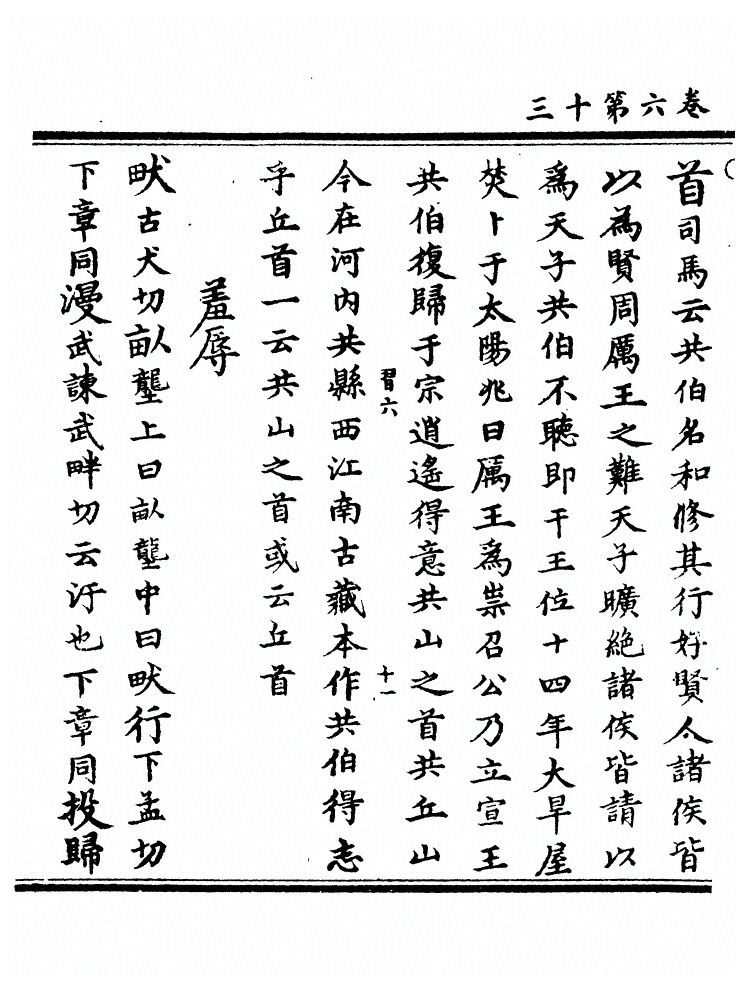 卷六第十三
首司馬云共伯名和修其行好賢人諸侯皆
以為賢周厲王之難天子曠絶諸侯皆請以
爲天子共伯不聽即干王位十四年大旱屋
焚卜于太陽兆曰厲王爲祟召公乃立宣王
共伯復歸于宗逍遙得意共山之首共丘山
習六
十一
今在河内共縣西江南古藏本作共伯得志
乎丘首一云共山之首或云丘首
羞辱
畎古犬切畝壟上曰畝壟中曰畎行下孟切
下章同漫武諫武畔切云汙也下章同投歸